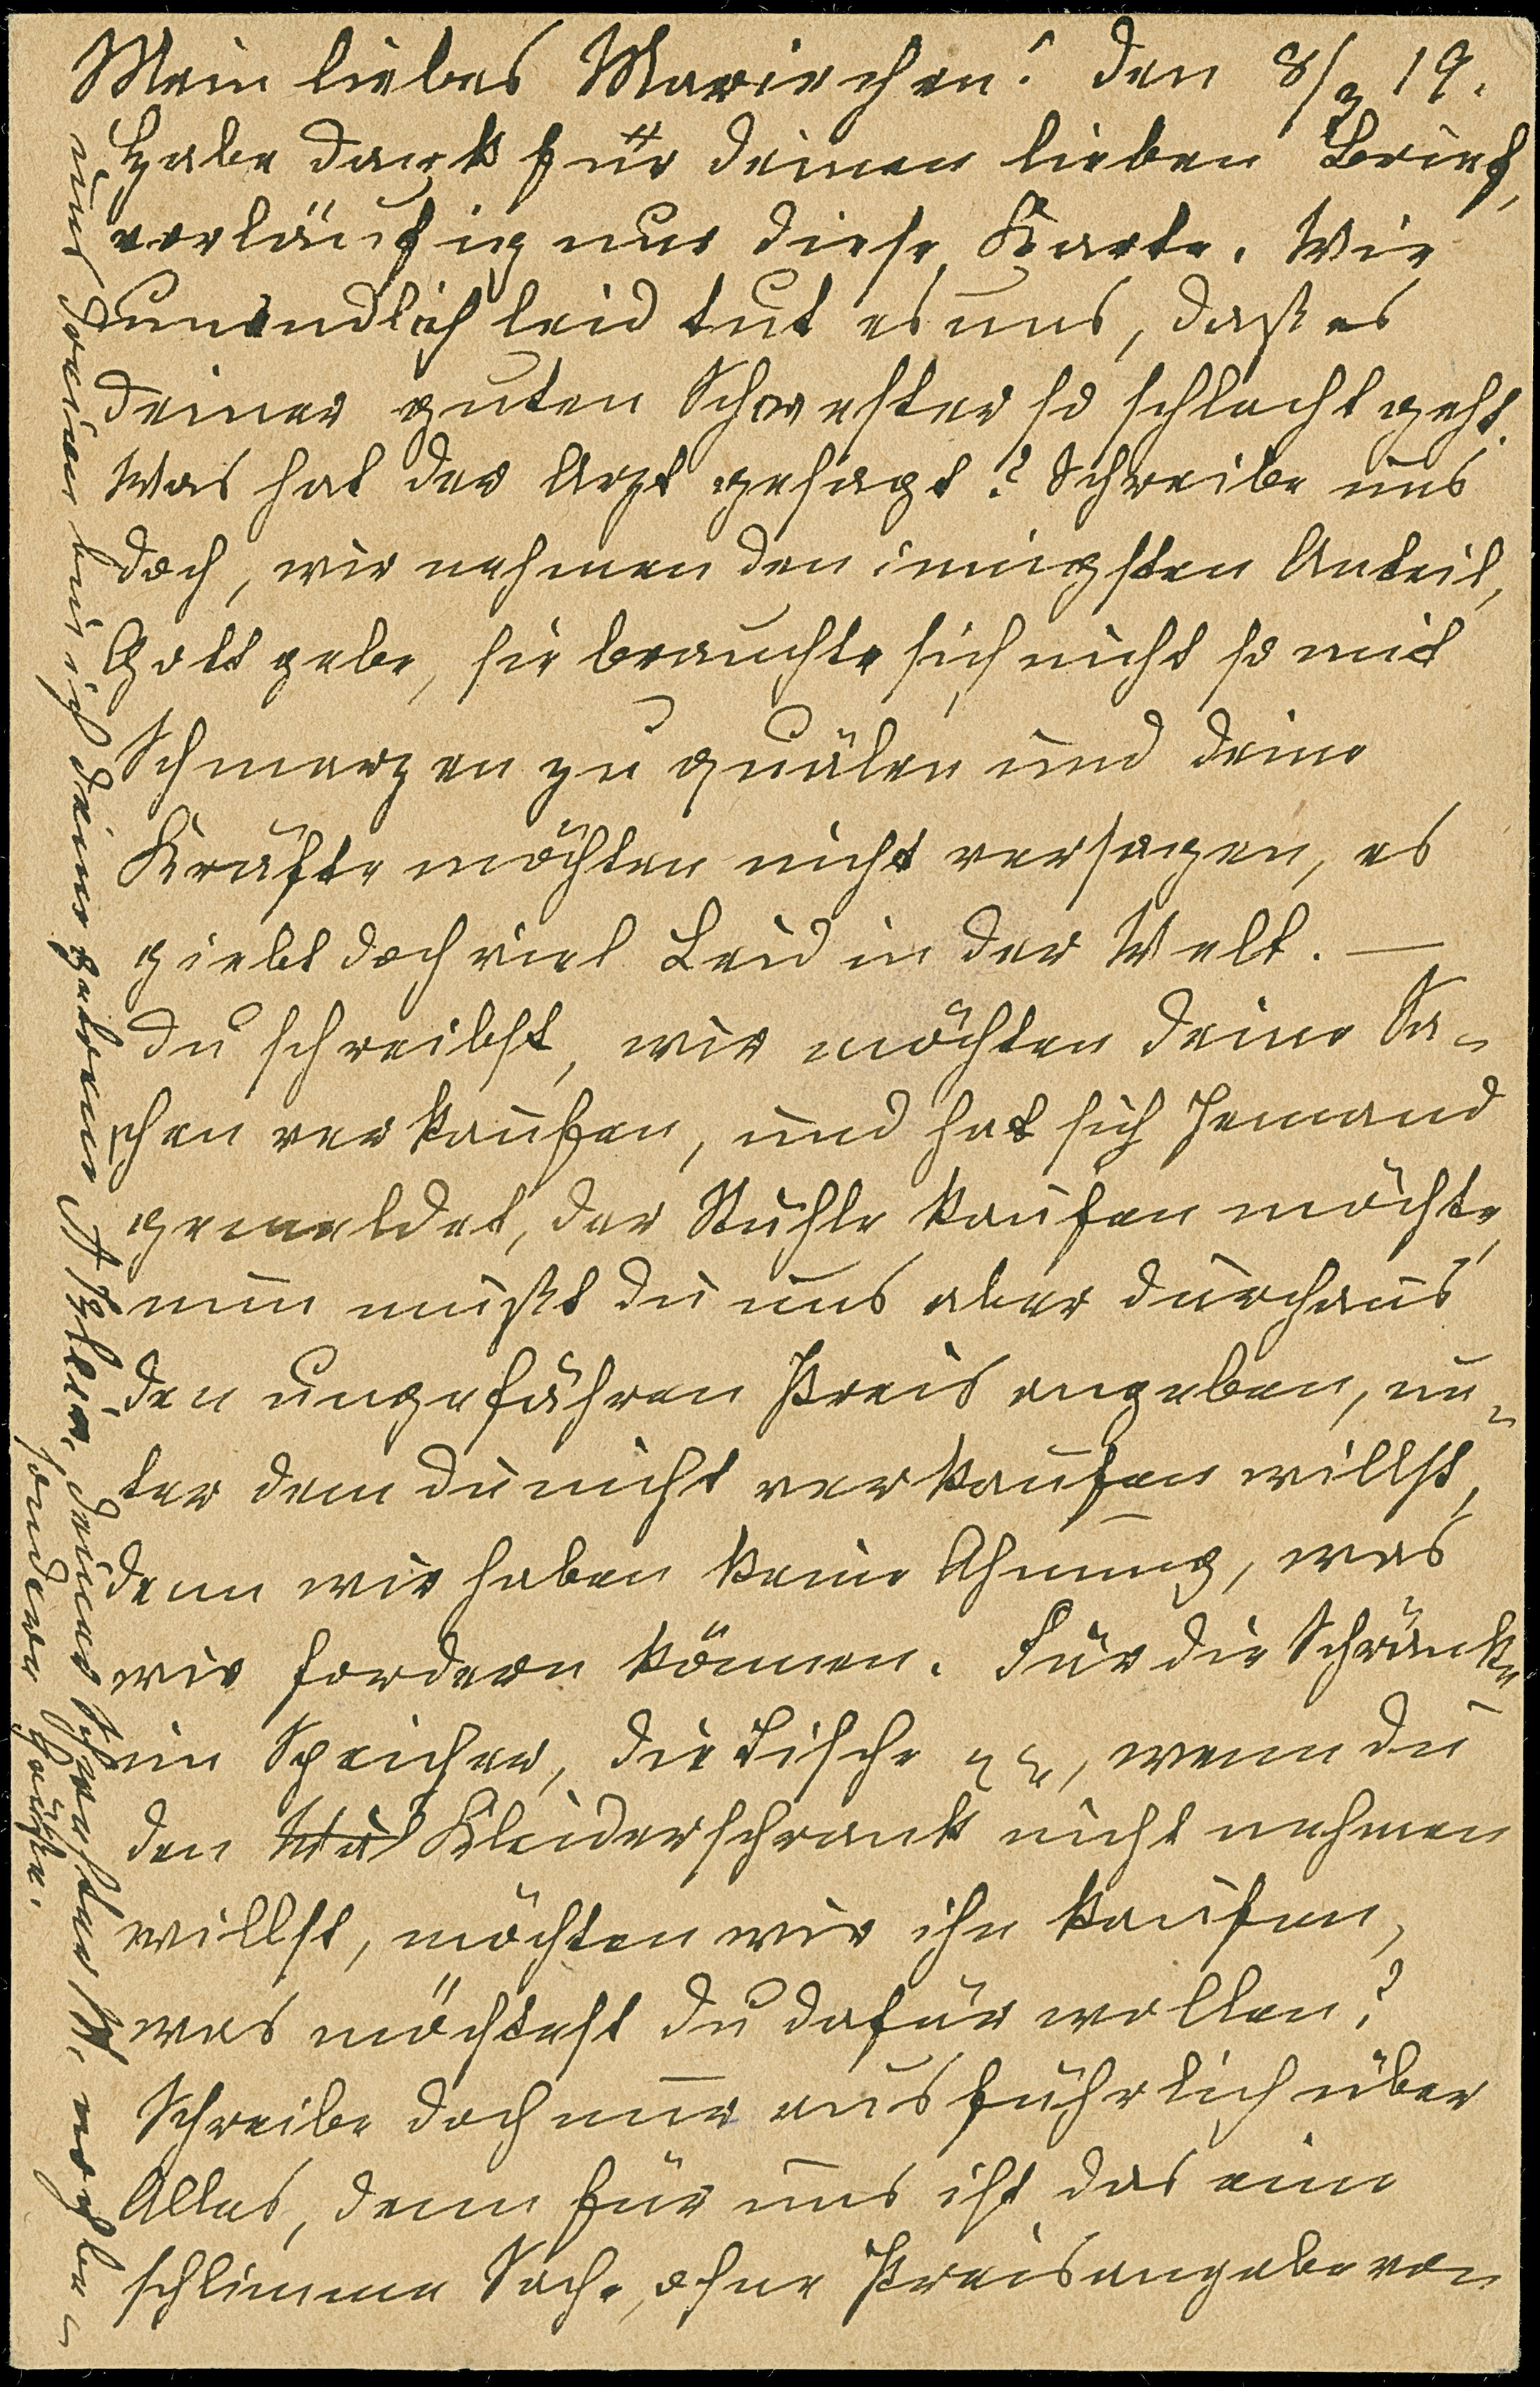 Mein liebes Mariechen! den 8/3 19.
Habe dank für deinen lieben Brief,
vorläufig nur diese Karte. Wie
unendlich leid tut es uns, daß es
deiner guten Schwester so schlecht geht.
Was hat der Arzt gesagt? Schreibe uns
doch, wir nehmen den innigsten Anteil,
Gott gebe, sie brauchte sich nicht so mit
Schmerzen zu quälen und deine
Kräfte möchten nicht versagen, es
giebt doch viel Leid in der Welt. —
du schreibst, wir möchten deine Sa-
chen verkaufen, und hat sich Jemand
gemeldet, der Stühle kaufen möchte,
nun mußt du uns aber durchaus
den ungefähren Preis angeben, un-
ter dem du nicht verkaufen willst,
denn wir haben keine Ahnung, was
wir fordern können. Für die Schränke
im Speicher, die Tische , wenn du
den Kleiderschrank nicht nehmen
willst, möchten wir ihn kaufen,
was möchtest du dafür wollen?
Schreibe doch nur ausführlich über
Alles, denn für uns ist das eine
schlimme Sache, ohne Preisangabe von
bin ich deine getreue deiner Schwester noch be-
sondere Grüße.